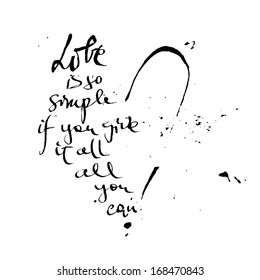 Love
is so
simple
if you give
it all
all
you
can!
shutterstock.com · 168470843